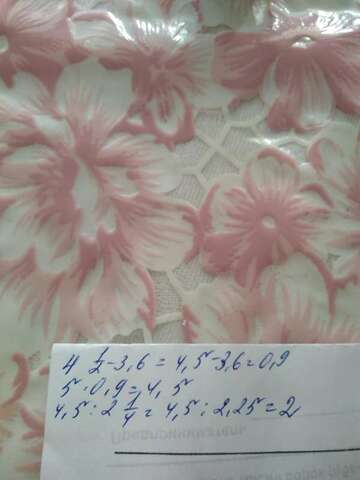 4 1/2-3,6 = 4,5-3,6=0,9
5·0,9=4,5
4,5:2 1/4=4,5:2,25=2
Предприниматель